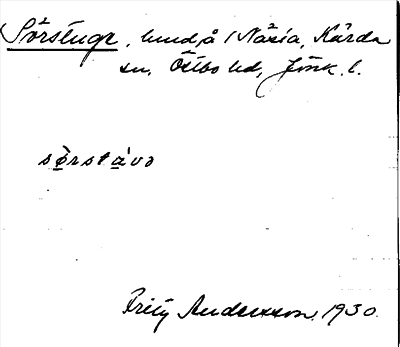 Sörstuge, lund, å 1 Näsia, Kärda
sn, Östbo hd, Jönk. l.
sø̀rstávə
Fritz Andersson. 1930.